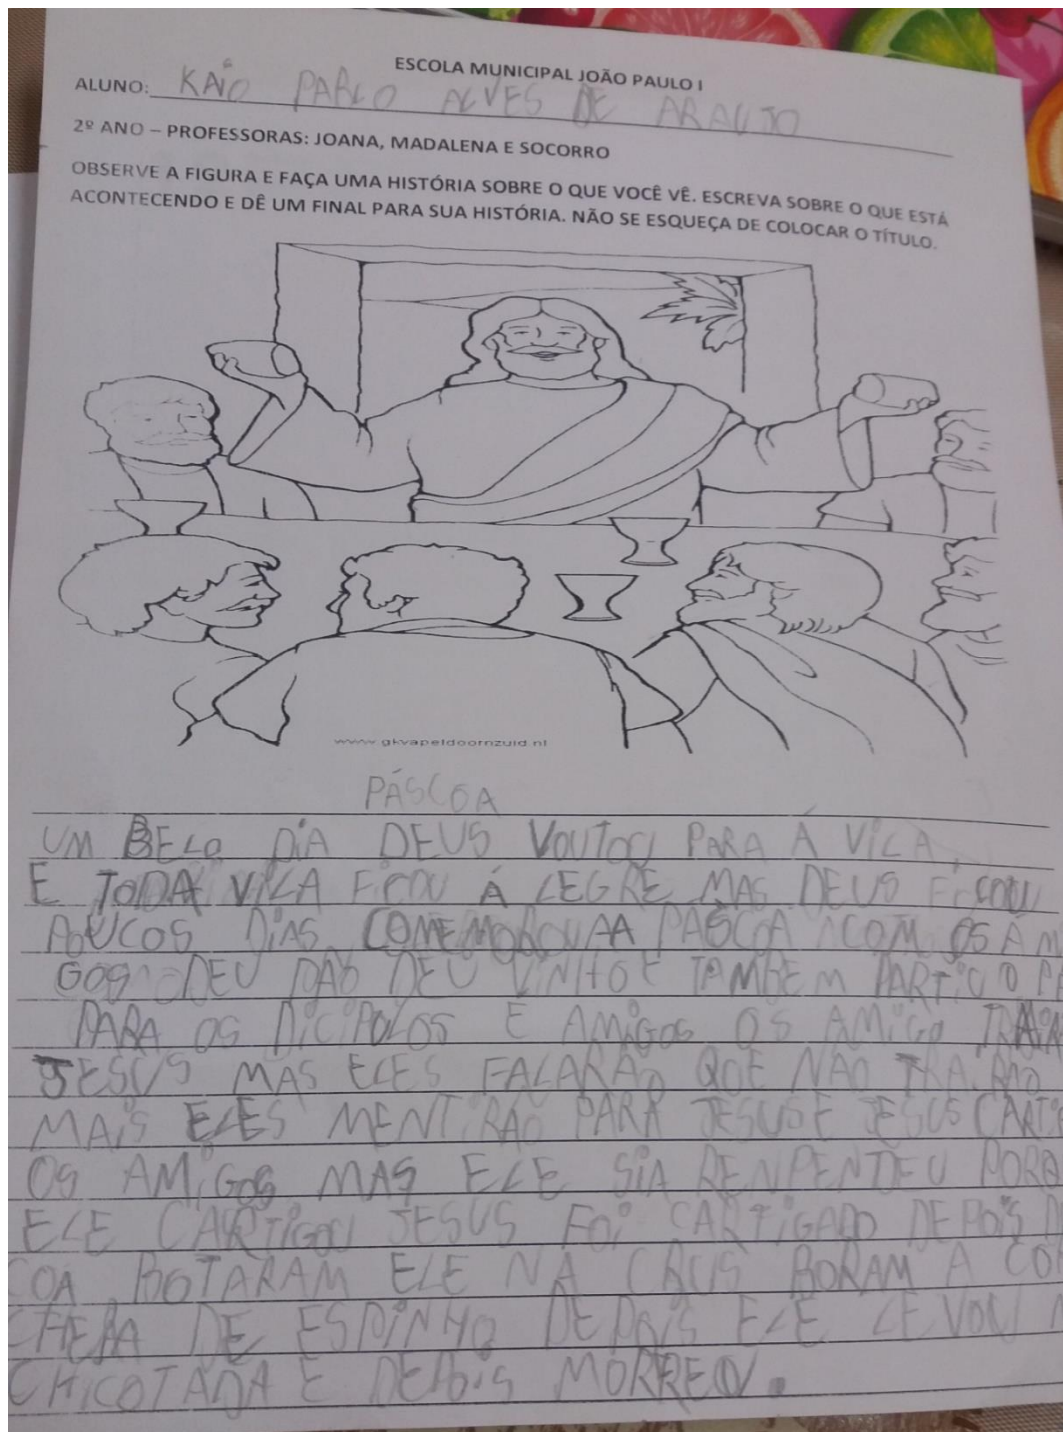 ESCOLA MUNICIPAL JOÃO PAULO I
ALUNO: KAIO PABLO ALVES DE ARAUJO
2º ANO – PROFESSORAS: JOANA, MADALENA E SOCORRO
OBSERVE A FIGURA E FAÇA UMA HISTÓRIA SOBRE O QUE VOCÊ VÊ. ESCREVA SOBRE O QUE ESTÁ
ACONTECENDO E DÊ UM FINAL PARA SUA HISTÓRIA. NÃO SE ESQUEÇA DE COLOCAR O TÍTULO.
www.gkvapeldoornzuid.nl
PÁSCOA
UM BELO DIA DEUS VOUTOU PARA Á VILA,
E TODA VILA FICOU Á LEGRE MAS DEUS FICOU
POUCOS DIAS, COMEMOROU AA PÁSCOA COM OS AM
GOS DEU PÃO DEU VINHO E TAMBÉM PARTIU O PÃ
PARA OS DICIPOLOS E AMIGOS OS AMIGO TRAIA
JESUS MAS ELES FALARÃO QUE NÃO TRAIRÃO
MAIS ELES MENTIRÃO PARA JESUS E JESUS CARTI
OS AMIGOS MAS ELE SIA RENPENTEU PORQ
ELE CARTIGOU JESUS FOI CARTIGADO DEPOIS D
COA BOTARAM ELE NA CRUS BORAM A CO
CHEIA DE ESPINHO DEPOIS ELE LEVOU
CHICOTADA E DEPOIS MORREU.